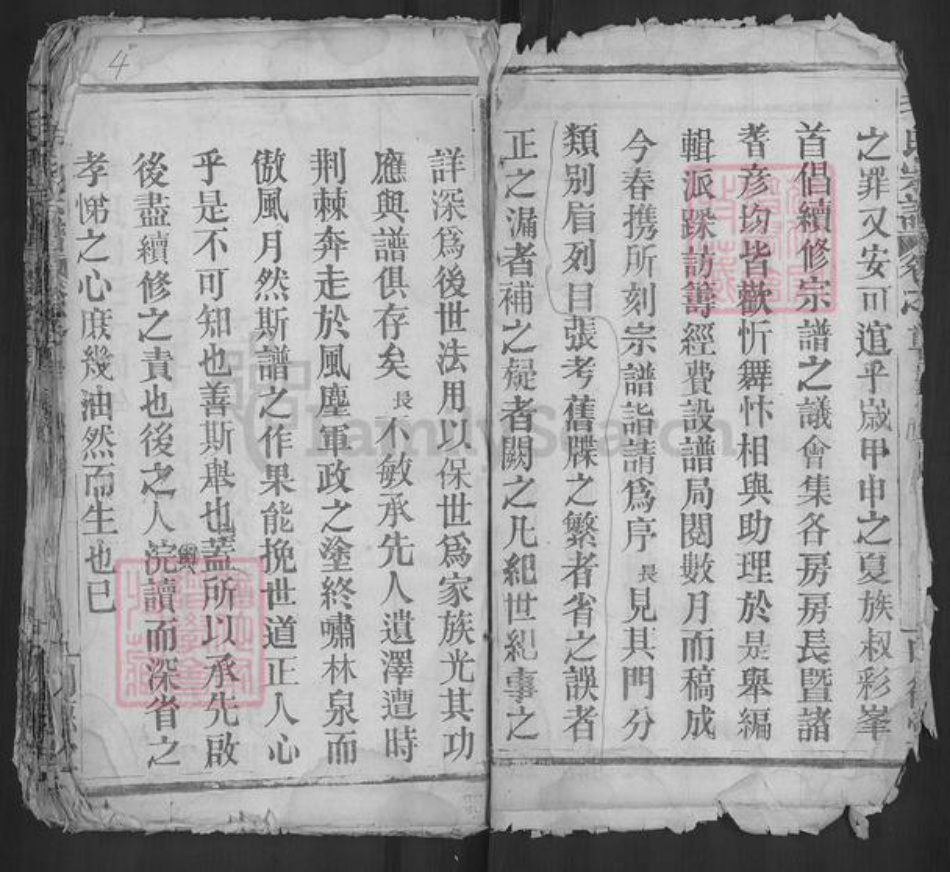 之罪又安可逭乎嵗甲申之夏族叔彩峯
首倡續修宗譜之議會集各房房長暨諸
耆彦均皆歡忻舞忭相與助理於是舉編
輯派踩訪籌經費設譜局閱數月而稿成
今春携所刻宗譜詣請爲序長見其門分
類別眉列目張考舊牒之繁者省之誤者
正之漏者補之疑者闕之凡紀世紀事之
詳深爲後世法用以保世爲家族光其功
應與譜俱存矣長不敏承先人遺澤遭時
荆棘奔走於風塵軍政之塗終嘯林泉而
傲風月然斯譜之作果能挽世道正人心
乎是不可知也善斯舉也蓋所以承先啟
後盡續修之責也後之人浣讀而深省之
輿
孝悌之心庶幾油然而生也已
4
FamilySearch